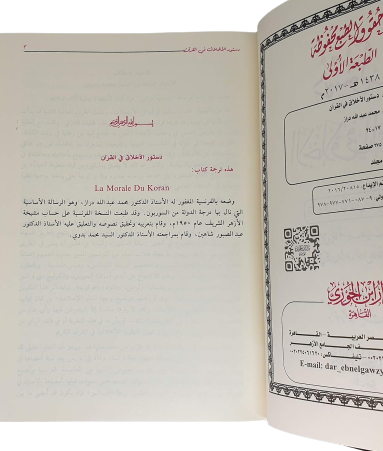 حقوق الطبع محفوظة
الطبعة الأولى
١٤٣٨ هـ - ٢٠١٧ م
دستور الأخلاق في القرآن
محمد عبد الله دراز
٢٤×١٧
صفحة
مجلد
الإيداع:
دار ابن الجوزي
القاهرة
مصر العربية - القاهرة
الجامع الأزهر
تليفاكس:
E-mail: dar_ebnelgawzy
دستور الأخلاق في القرآن
٣
بسم الله الرحمن الرحيم
دستور الأخلاق في القرآن
هذه ترجمة كتاب:
La Morale Du Koran
وضعه بالفرنسية المغفور له الأستاذ الدكتور محمد عبد الله دراز، وهو الرسالة الأساسية
التي نال بها درجة الدولة من السوربون. وقد طبعت النسخة الفرنسية على حساب مشيخة
الأزهر الشريف عام ١٩٥٠م، وقام بتعريبه وتحقيق نصوصه والتعليق عليه الأستاذ الدكتور
عبد الصبور شاهين، وقام بمراجعته الأستاذ الدكتور السيد محمد بدوي.